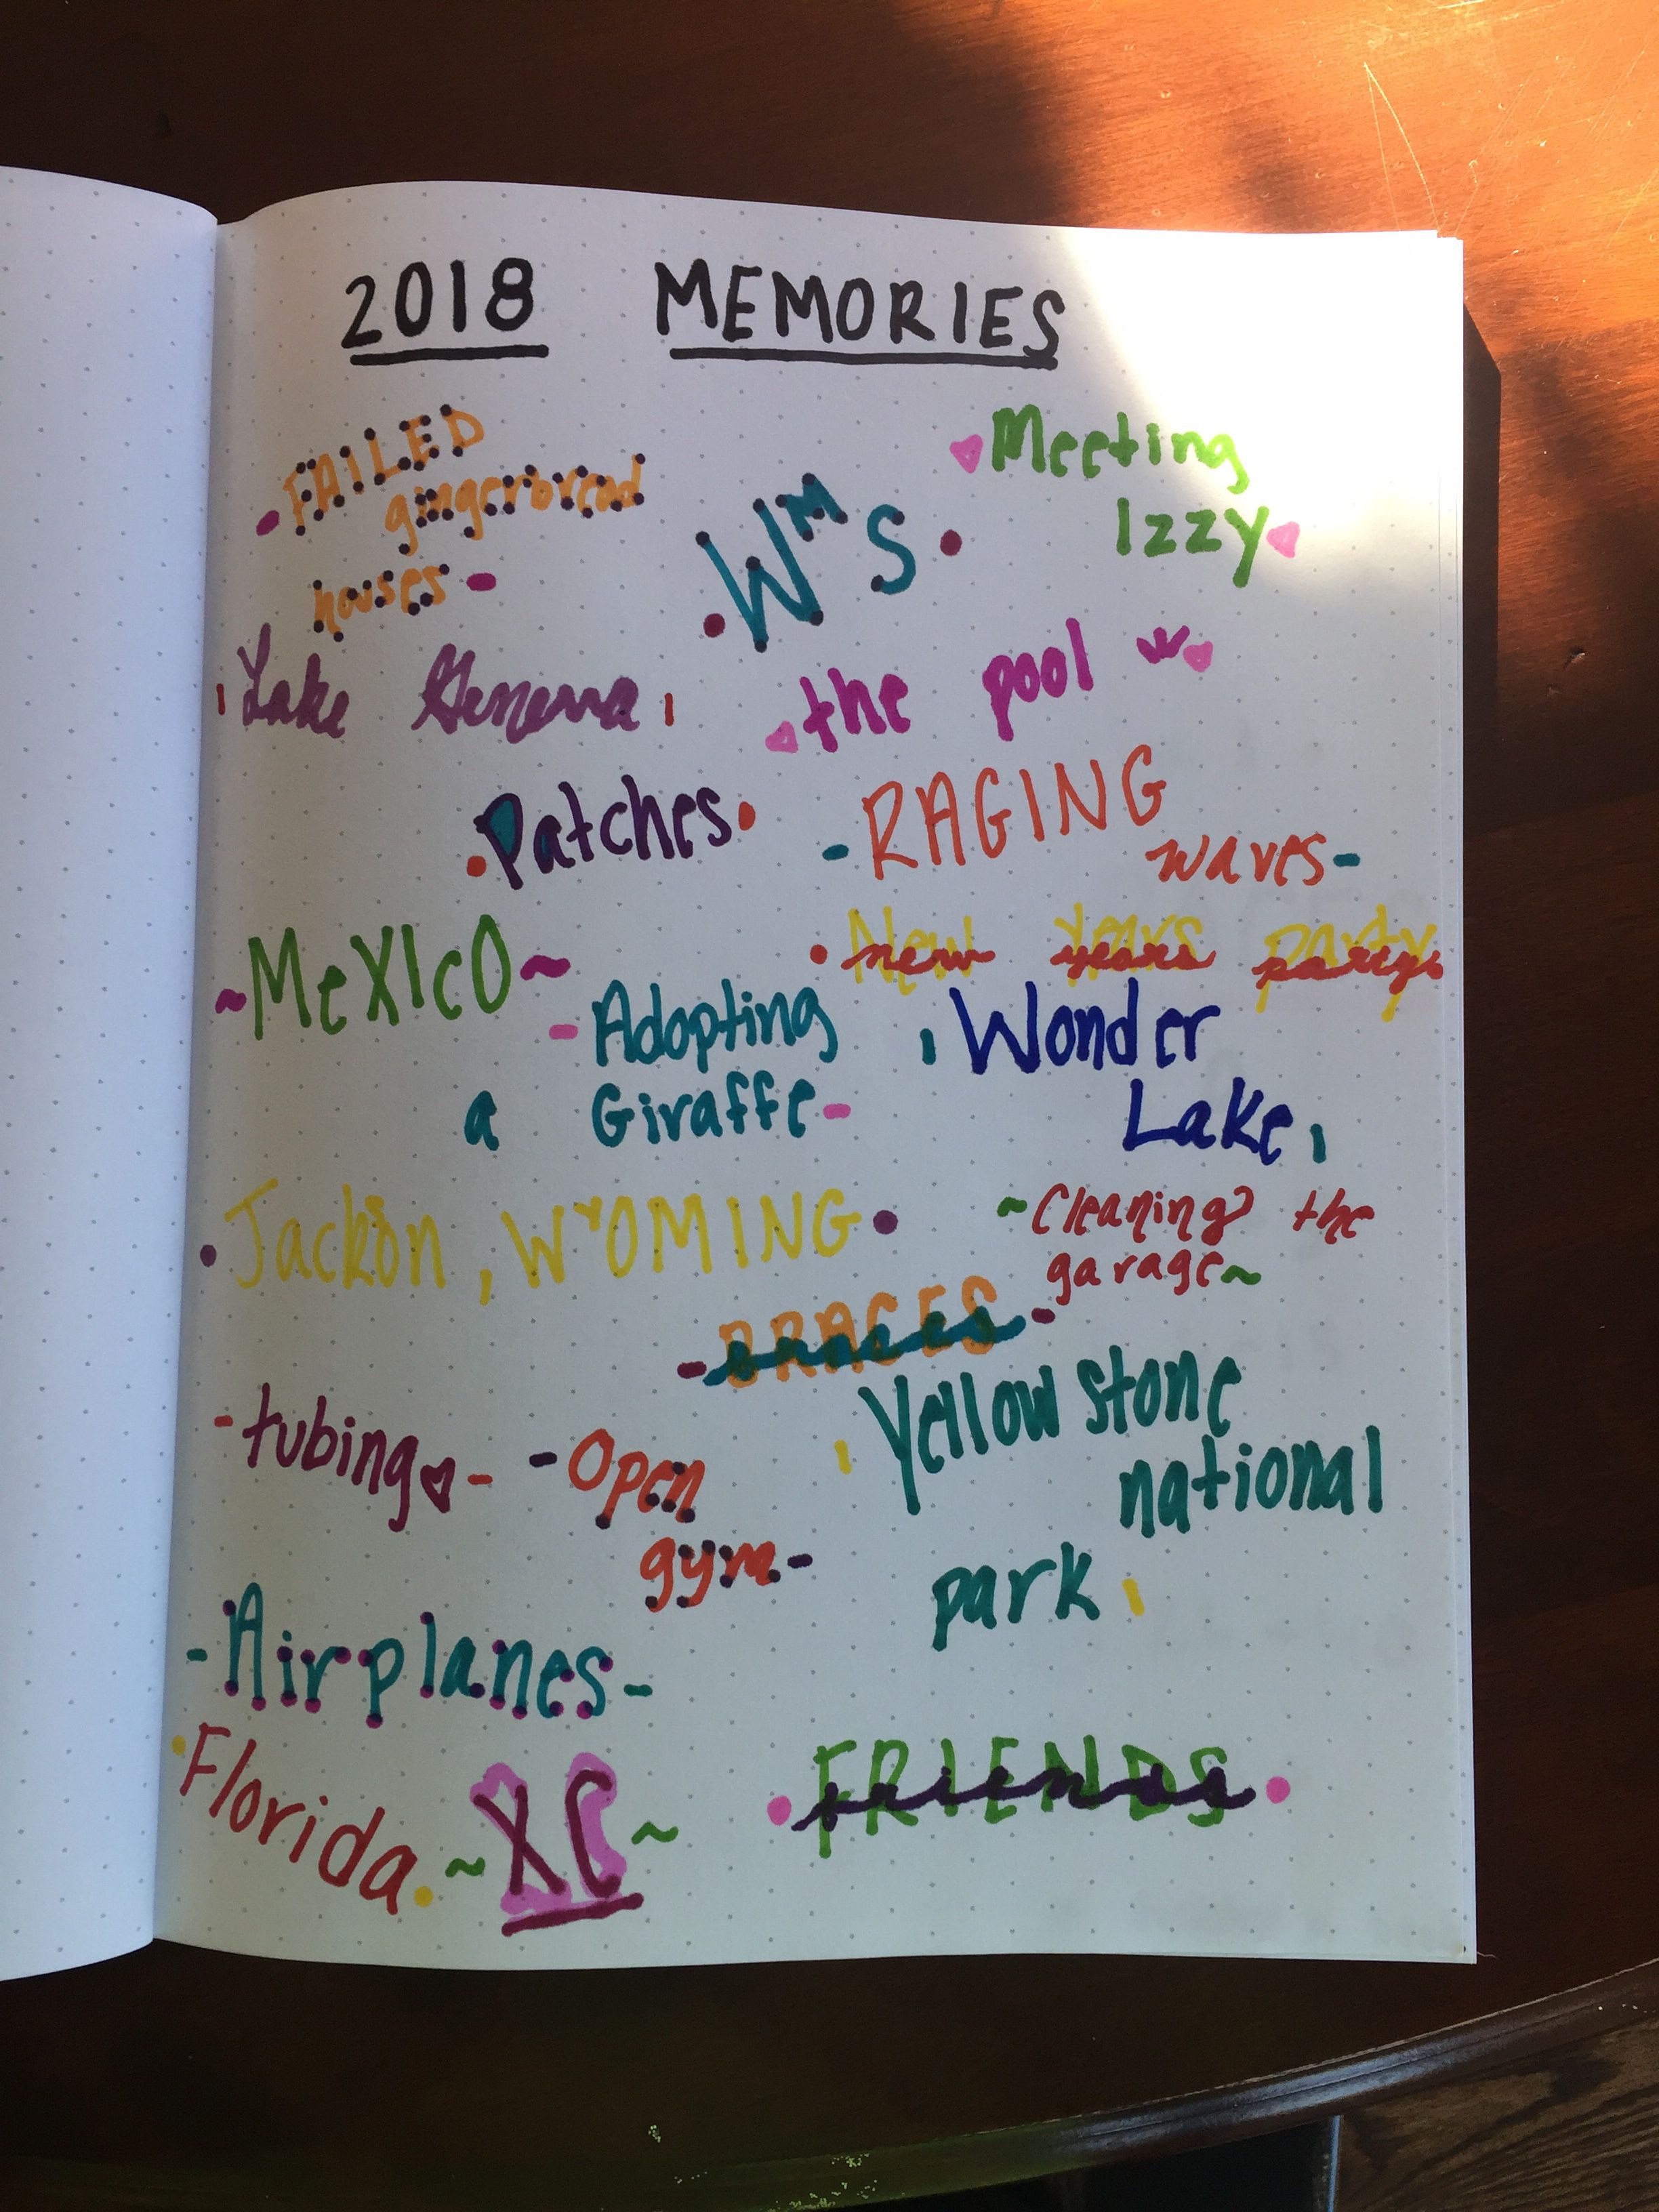 2018 MEMORIES
FAILED
gingerbread
houses
WMS
Meeting
Izzy
Lake Geneva
the pool
Patches
RAGING
waves
MeXIcO
New Years party
new years party
Adopting
a Giraffe
Wonder
Lake
Jackson, WYOMING
Cleaning the
garage
BRACES
braces
tubing
Open
gym
Yellowstone
national
park
Airplanes
Florida
XC
FRIENDS
friends